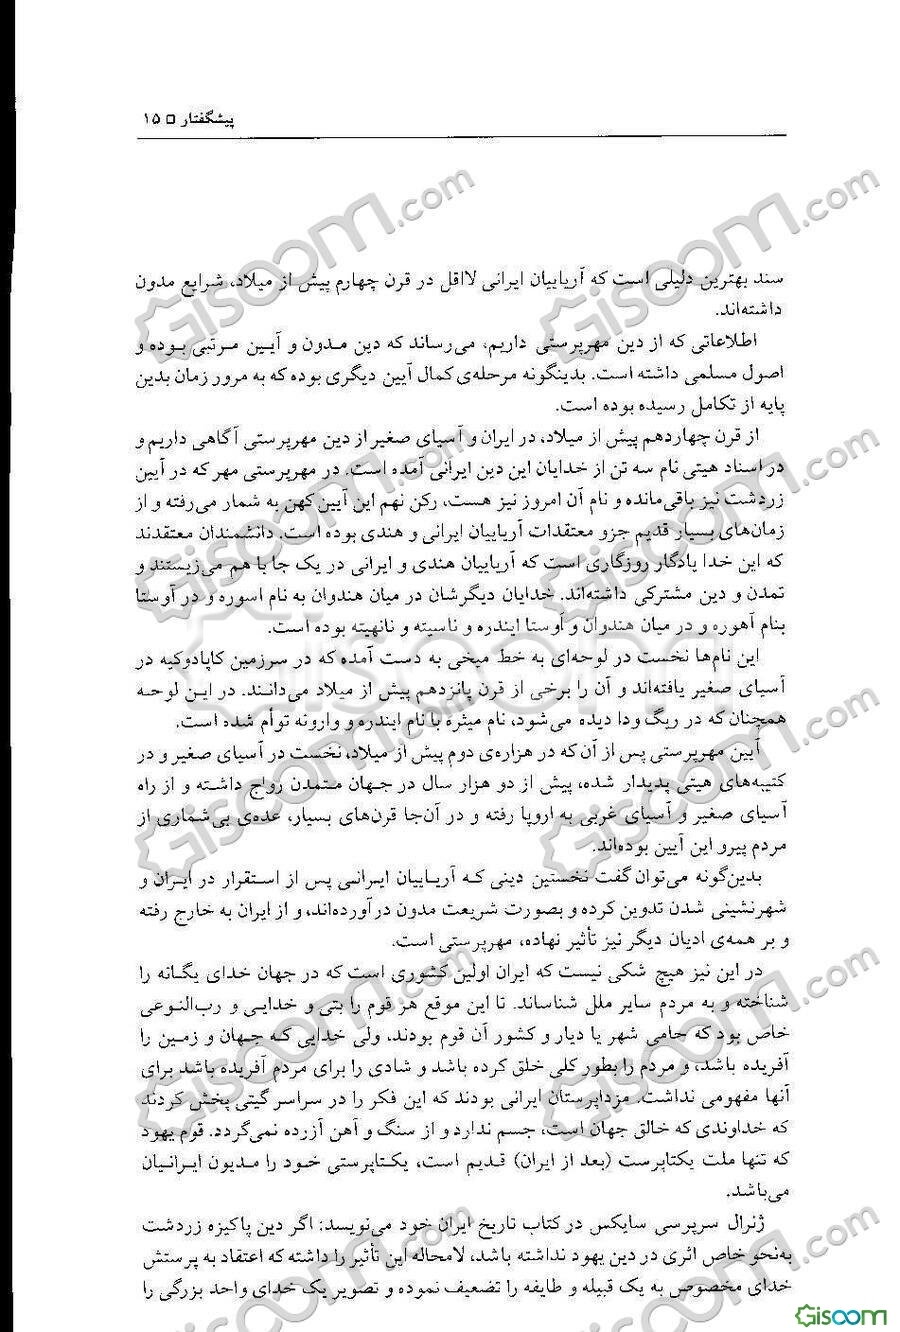 پیشگفتار □ ۱۵
سند بهترین دلیلی است که آریاییان ایرانی لااقل در قرن چهارم پیش از میلاد، شرایع مدون
داشته‌اند.
اطلاعاتی که از دین مهرپرستی داریم، می‌رساند که دین مدون و آیین مرتبی بوده و
اصول مسلمی داشته است. بدینگونه مرحله‌ی کمال آیین دیگری بوده که به مرور زمان بدین
پایه از تکامل رسیده بوده است.
از قرن چهاردهم پیش از میلاد، در ایران و آسیای صغیر از دین مهرپرستی آگاهی داریم و
در اسناد هیتی نام سه تن از خدایان این دین ایرانی آمده است. در مهرپرستی مهر که در آیین
زردشت نیز باقی‌مانده و نام آن امروز نیز هست، رکن نهم این آیین کهن به شمار می‌رفته و از
زمان‌های بسیار قدیم جزو معتقدات آریاییان ایرانی و هندی بوده است. دانشمندان معتقدند
که این خدا یادگار روزگاری است که آریاییان هندی و ایرانی در یک جا با هم می‌زیستند و
تمدن و دین مشترکی داشته‌اند. خدایان دیگرشان در میان هندوان به نام اسوره و در آوستا
بنام آهوره و در میان هندوان و آوستا ایندره و ناسیته و نانهیته بوده است.
این نام‌ها نخست در لوحه‌ای به خط میخی به دست آمده که در سرزمین کاپادوکیه در
آسیای صغیر یافته‌اند و آن را برخی از قرن پانزدهم پیش از میلاد می‌دانند. در این لوحه
همچنان که در ریگ ودا دیده می‌شود، نام میثره با نام ایندره و وارونه توأم شده است.
آیین مهرپرستی پس از آن‌که در هزاره‌ی دوم پیش از میلاد، نخست در آسیای صغیر و در
کتیبه‌های هیتی پدیدار شده، پیش از دو هزار سال در جهان متمدن رواج داشته و از راه
آسیای صغیر و آسیای غربی به اروپا رفته و در آن‌جا قرن‌های بسیار، عده‌ی بی‌شماری از
مردم پیرو این آیین بوده‌اند.
بدین‌گونه می‌توان گفت نخستین دینی که آریاییان ایرانی پس از استقرار در ایران و
شهرنشینی شدن تدوین کرده و بصورت شریعت مدون درآورده‌اند، و از ایران به خارج رفته
و بر همه‌ی ادیان دیگر نیز تأثیر نهاده، مهرپرستی است.
در این نیز هیچ شکی نیست که ایران اولین کشوری است که در جهان خدای یگانه را
شناخته و به مردم سایر ملل شناساند. تا این موقع هر قوم را بتی و خدایی و رب‌النوعی
خاص بود که حامی شهر یا دیار و کشور آن قوم بودند، ولی خدایی که جهان و زمین را
آفریده باشد، و مردم را بطور کلی خلق کرده باشد و شادی را برای مردم آفریده باشد برای
آنها مفهومی نداشت. مزداپرستان ایرانی بودند که این فکر را در سراسر گیتی پخش کردند
که خداوندی که خالق جهان است، جسم ندارد و از سنگ و آهن آزرده نمی‌گردد. قوم یهود
که تنها ملت یکتاپرست (بعد از ایران) قدیم است، یکتاپرستی خود را مدیون ایرانیان
می‌باشد.
ژنرال سرپرسی سایکس در کتاب تاریخ ایران خود می‌نویسد: اگر دین پاکیزه زردشت
به‌نحو خاص اثری در دین یهود نداشته باشد، لامحاله این تأثیر را داشته که اعتقاد به پرستش
خدای مخصوص به یک قبیله و طایفه را تضعیف نموده و تصویر یک خدای واحد بزرگی را
Gisoom